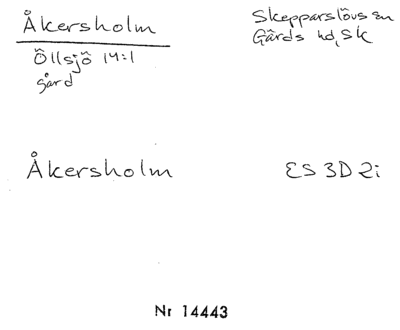 Åkersholm
Skepparslövs sn
Gärds hd, Sk
Öllsjö 14:1
gård
Åkersholm
ES 3D 2i
Nr 14443